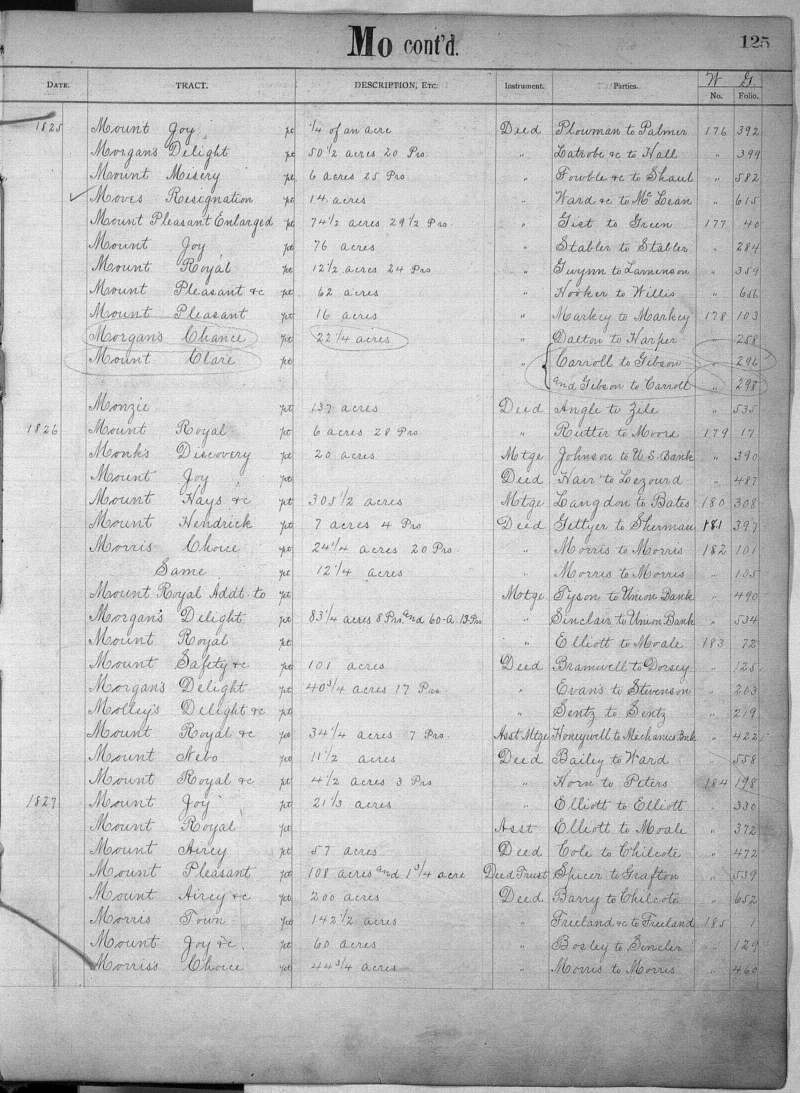 Mo cont'd. 125
W G
DATE. TRACT. DESCRIPTION, ETC. Instrument. Parties. No. Folio.
1825 Mount Joy pt 1/4 of an acre Deed Plowman to Palmer 176 392
Morgan's Delight pt 50 1/2 acres 20 Prs " Latrobe &c to Hall " 399
Mount Misery pt 6 acres 25 Prs " Fowble &c to Shaul " 582
Moves Resignation pt 14 acres " Ward &c to McLean " 615
Mount Pleasant Enlarged pt 74 1/2 acres 29 1/2 Prs " Gist to Green 177 40
Mount Joy pt 76 acres " Stabler to Stabler " 284
Mount Royal pt 12 1/2 acres 24 Prs " Guynn to Lamenson " 359
Mount Pleasant &c pt 62 acres " Hooker to Willis " 656
Mount Pleasant pt 16 acres " Markey to Markey 178 103
Morgan's Chance pt 22 1/4 acres " Dalton to Harper " 258
Mount Clare pt " Carroll to Gibson " 296
and Gibson to Carroll " 298
Monzie pt 137 acres Deed Angle to Zile " 535
1826 Mount Royal pt 6 acres 28 Prs " Rutter to Moore 179 17
Monks Discovery pt 20 acres Mtge Johnson to U.S. Bank " 390
Mount Joy pt Deed Hair to Lezourd " 487
Mount Hays &c pt 305 1/2 acres Mtge Langdon to Bates 180 308
Mount Hendrick pt 7 acres 4 Prs Deed Gettyer to Sherman 181 397
Morris Choice pt 24 1/4 acres 20 Prs " Morris to Morris 182 101
Same pt 12 1/4 acres " Morris to Morris " 105
Mount Royal Addt to pt Mtge Tyson to Union Bank " 490
Morgan's Delight pt 83 1/4 acres 8 Prs. and 60-a. 13 Prs " Sinclair to Union Bank " 534
Mount Royal pt " Elliott to Moale 183 72
Mount Safety &c pt 101 acres Deed Bramwell to Dorsey " 125
Morgan's Delight pt 40 3/4 acres 17 Prs " Evans to Stevenson " 203
Molley's Delight &c pt " Sentz to Sentz " 219
Mount Royal &c pt 34 1/4 acres 7 Prs. Asst Mtge Honeywell to Mechanics Bnk. " 422
Mount Nebo pt 11 1/2 acres Deed Bailey to Ward " 558
Mount Royal &c pt 4 1/2 acres 3 Prs " Horn to Peters 184 198
1827 Mount Joy pt 21 1/3 acres " Elliott to Elliott " 330
Mount Royal pt Asst Elliott to Moale " 372
Mount Airey pt 57 acres Deed Cole to Chilcote " 472
Mount Pleasant pt 108 acres and 1 3/4 acre Deed Trust Spicer to Grafton " 539
Mount Airey &c pt 200 acres Deed Barry to Chilcote " 652
Morris Town pt 142 1/2 acres " Freeland &c to Freeland 185 1
Mount Joy &c. pt 60 acres " Bosley to Sincler " 129
Morris's Choice pt 44 3/4 acres " Morris to Morris " 460